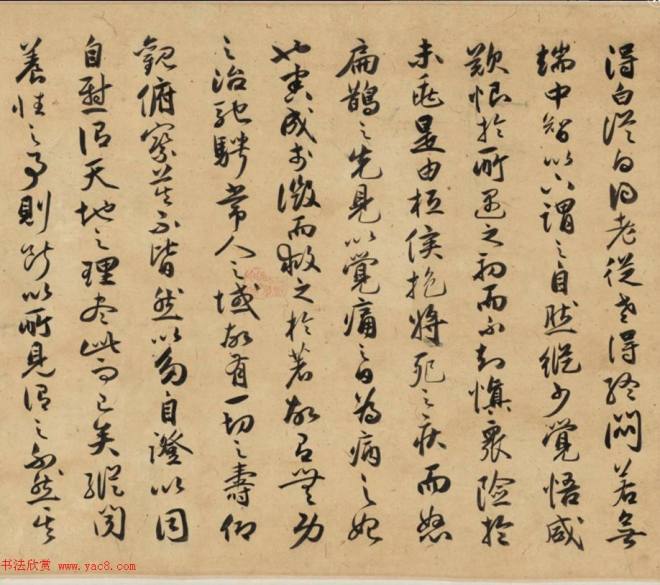 得白從白得老從老得終悶若無
端中智以下謂之自然縱少覺悟咸
歎恨於所遇之初而不知慎衆險於
未兆是由桓侯抱將死之疾而怒
扁鵲之先見以覺痛之日為病之始
也害成於微而救之於著故有無功
之治馳騁常人之域故有一切之壽仰
觀俯察莫不皆然以多自證以同
自慰謂天地之理盡此而已矣縱聞
養性之事則斷以所見謂之不然其
书法欣赏 www.yac8.com